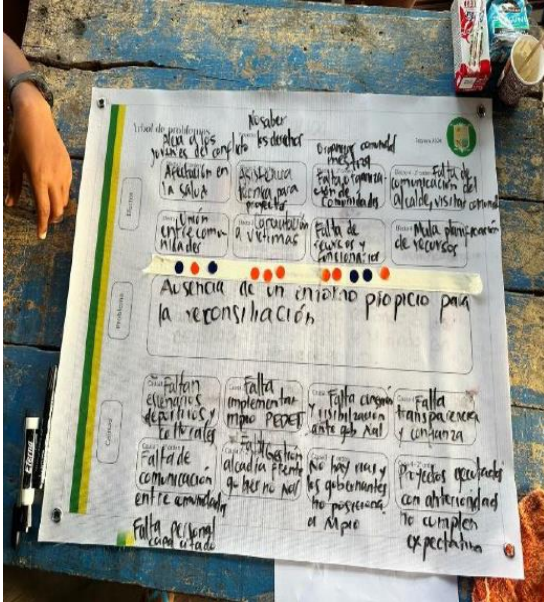 No saber
los derechos
Árbol de problemas
a los
jóvenes del conflicto
Organizar comunidad
Afectación en
la salud
Asistencia
técnica para
proyecto
Falta organiza-
ción de
comunidades
falta de
comunicación del
alcalde, visitar
Unión
entre comu-
nidades
Capacitación
a víctimas
Falta de
recursos y
funcionarios
Mala planificación
de recursos
Efectos
Problema
Ausencia de un entorno propicio para
la reconsiliación
Causas
Faltan
escenarios
deportivos y
culturales
Falta
implementar
mpio PEDET
Falta
y visibilización
ante gob Nal
Falta
transparencia
y confianza
Falta de
comunicación
entre comunidades
Falta gestión
alcadía frente
gobierno Nal
No hay vías y
los gobernantes
no posiciona
al Mpio
Proyectos ejecutados
con anterioridad
no cumplen
expectativa
Falta personal
capacitado